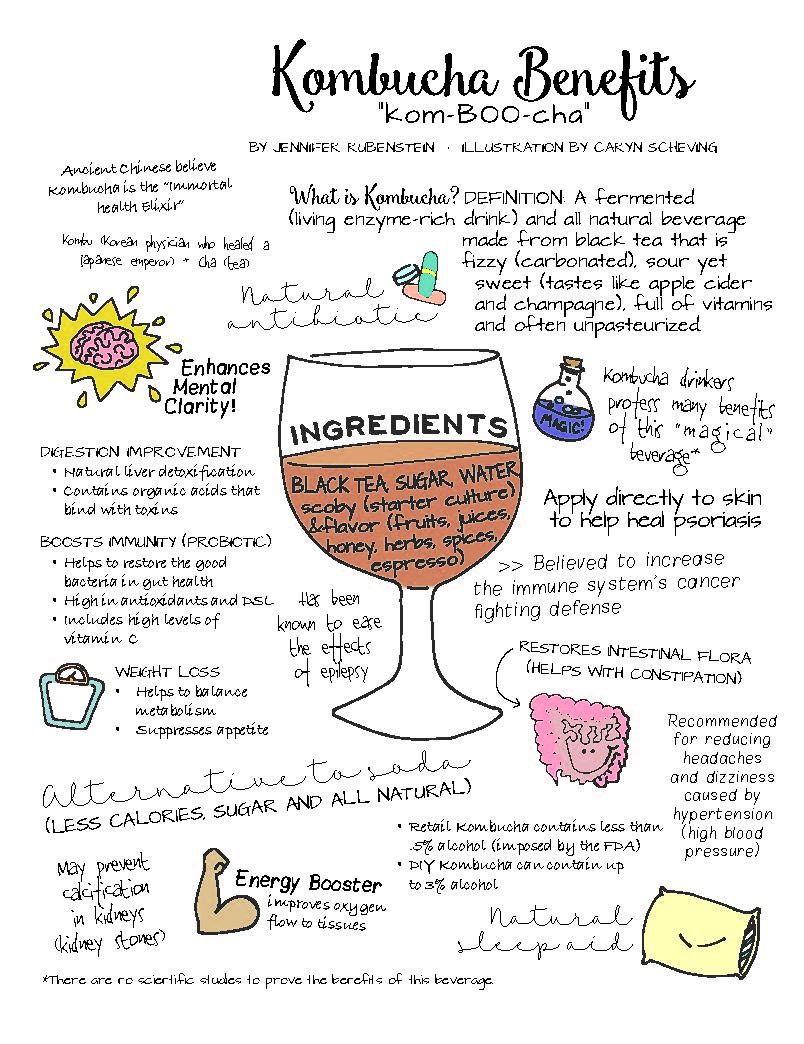 Kombucha Benefits
"kom-BOO-cha"
BY JENNIFER RUBENSTEIN · ILLUSTRATION BY CARYN SCHEVING
Ancient Chinese believe
Kombucha is the "Immortal
health Elixir"
Kombu (Korean physician who healed a
Japanese emperor) + Cha (tea)
What is Kombucha? DEFINITION: A fermented
(living enzyme-rich drink) and all natural beverage
made from black tea that is
fizzy (carbonated), sour yet
sweet (tastes like apple cider
and champagne), full of vitamins
and often unpasteurized.
Natural
antibiotic
Enhances
Mental
Clarity!
INGREDIENTS
BLACK TEA, SUGAR, WATER
scoby (starter culture)
&flavor (fruits, juices,
honey, herbs, spices,
espresso)
MAGIC!
Kombucha drinkers
profess many benefits
of this "magical"
beverage*
DIGESTION IMPROVEMENT
• Natural liver detoxification
• Contains organic acids that
bind with toxins
Apply directly to skin
to help heal psoriasis
BOOSTS IMMUNITY (PROBIOTIC)
• Helps to restore the good
bacteria in gut health
• High in antioxidants and DSL
• Includes high levels of
vitamin C
>> Believed to increase
the immune system's cancer
fighting defense
Has been
known to ease
the effects
of epilepsy
RESTORES INTESTINAL FLORA
(HELPS WITH CONSTIPATION)
WEIGHT LOSS
• Helps to balance
metabolism
• Suppresses appetite
Recommended
for reducing
headaches
and dizziness
caused by
hypertension
(high blood
pressure)
Alternative to soda
(LESS CALORIES, SUGAR AND ALL NATURAL)
• Retail Kombucha contains less than
.5% alcohol (imposed by the FDA)
• DIY Kombucha can contain up
to 3% alcohol
May prevent
calcification
in kidneys
(kidney stones)
Energy Booster
improves oxygen
flow to tissues
Natural
sleep aid
*There are no scientific studies to prove the benefits of this beverage.